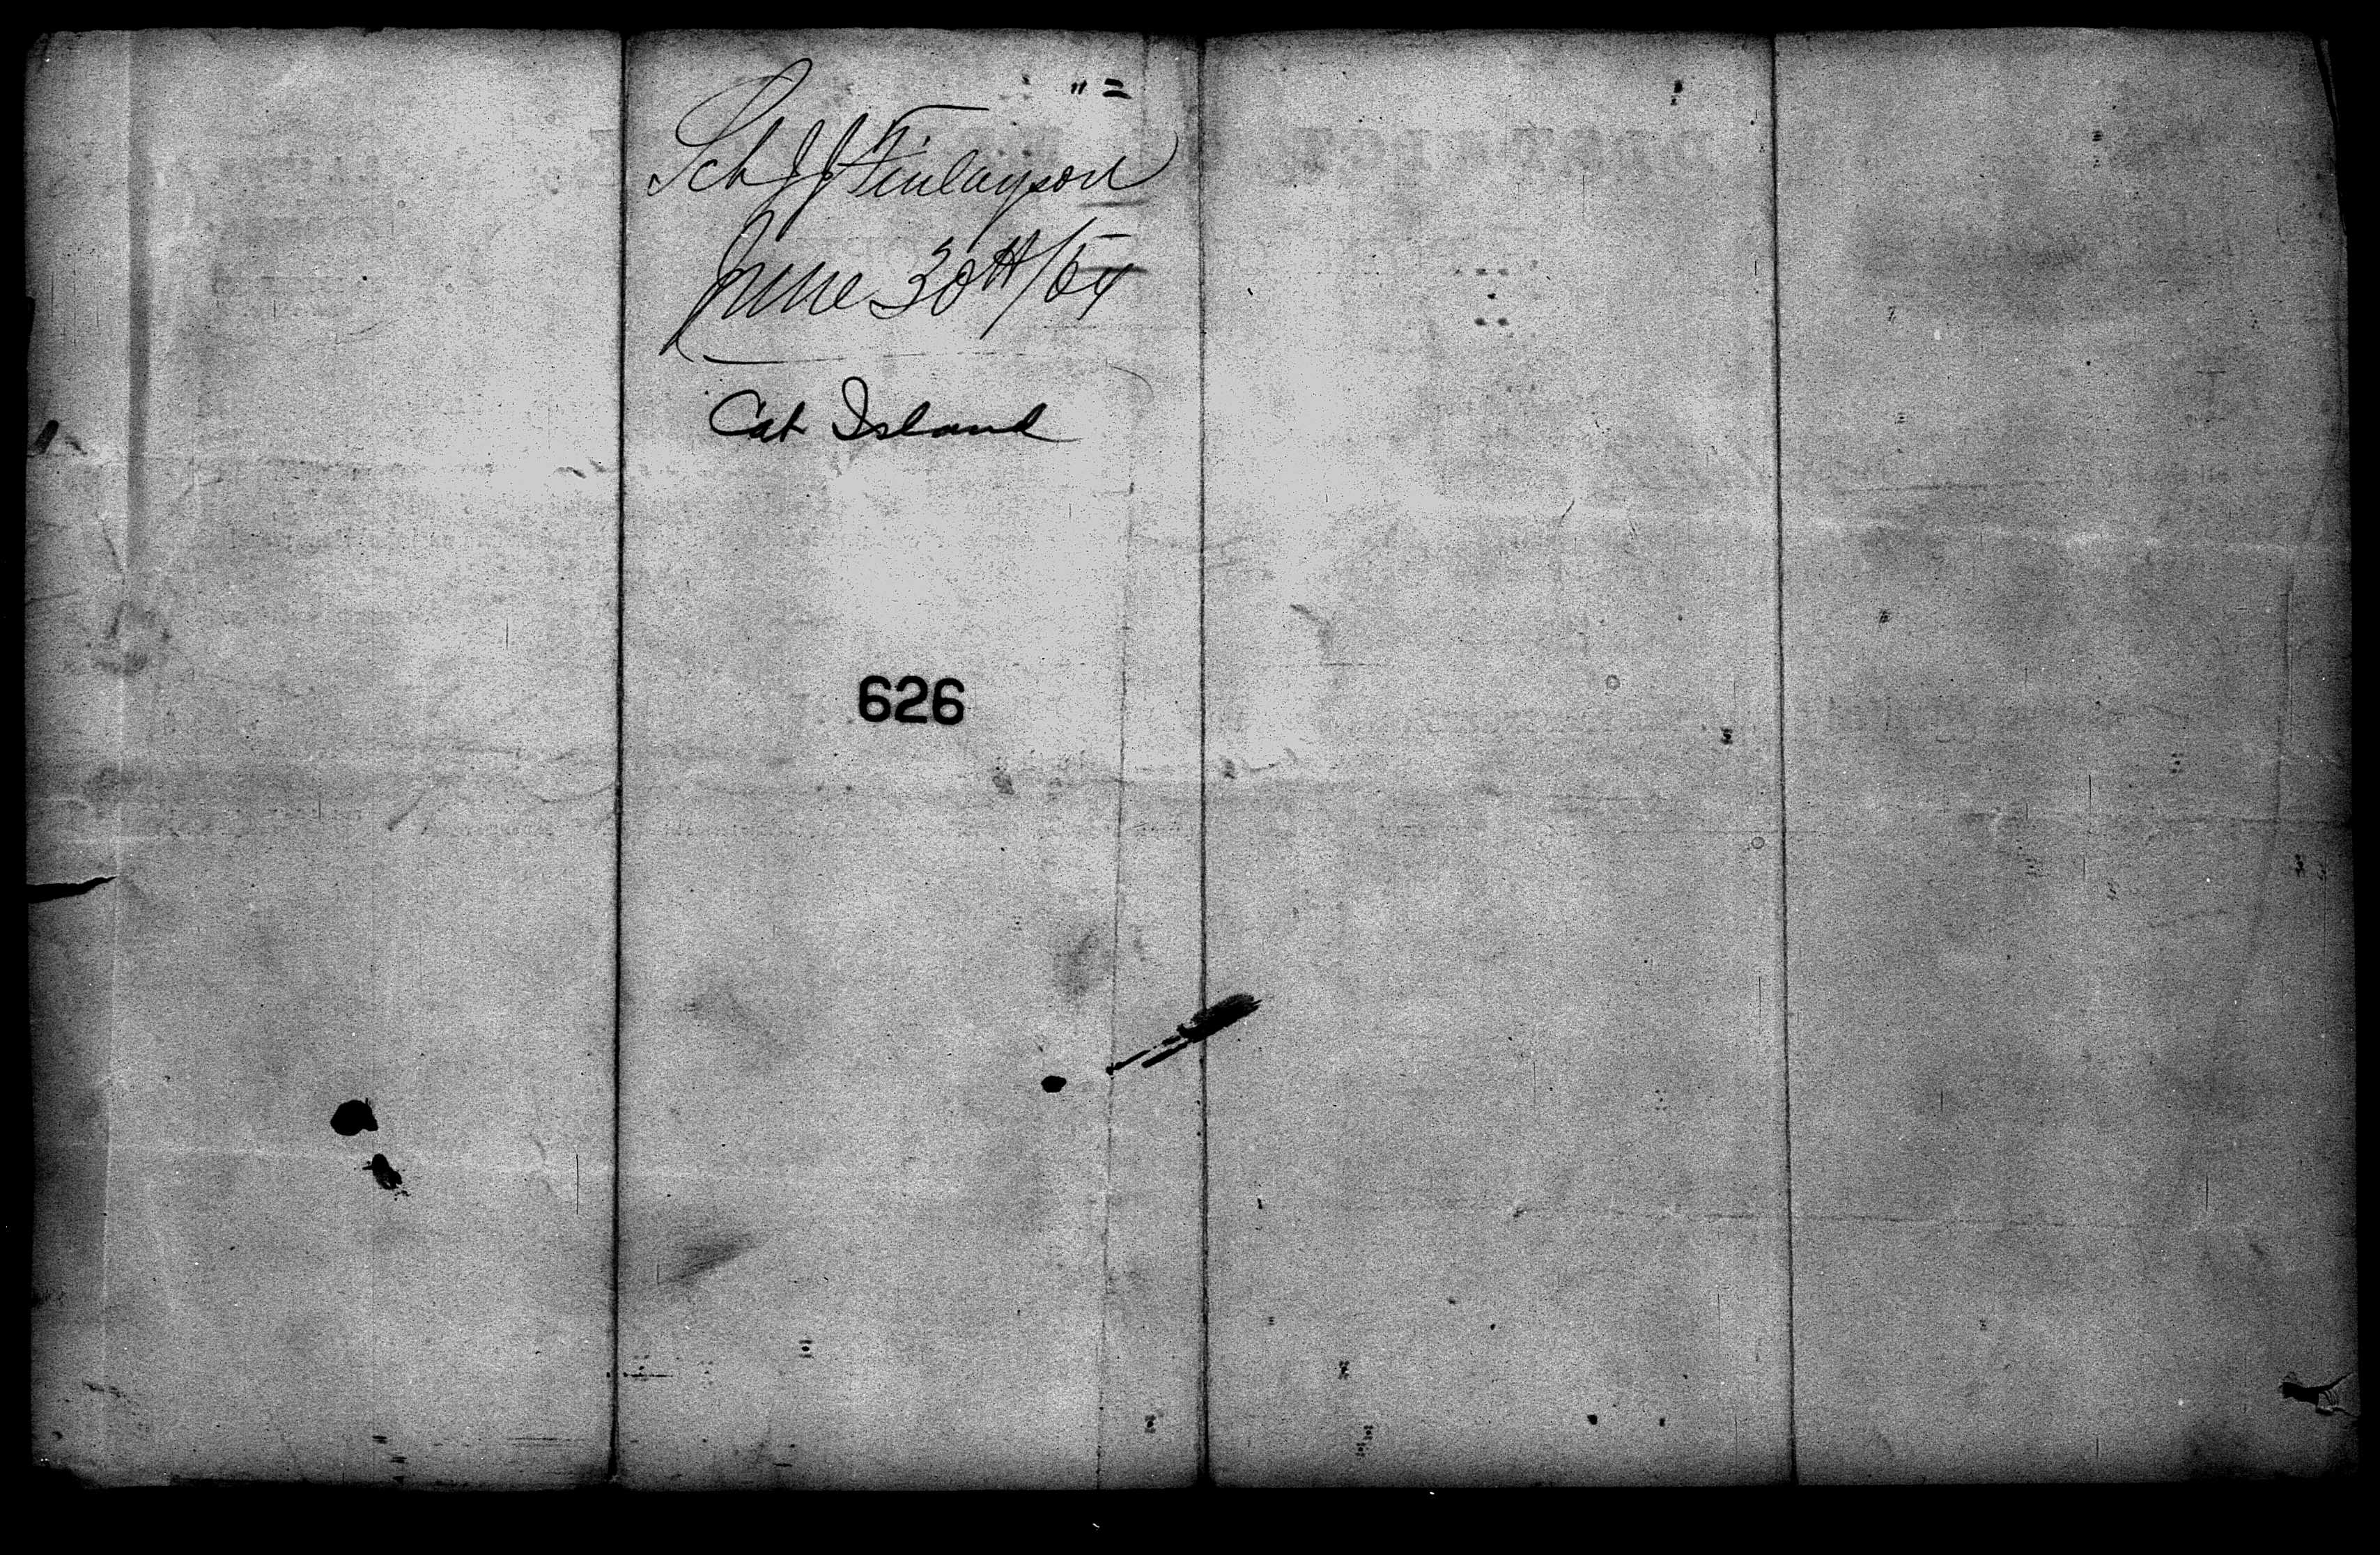 Sch J J Finlayson
June 30th/64
Cat Island
626